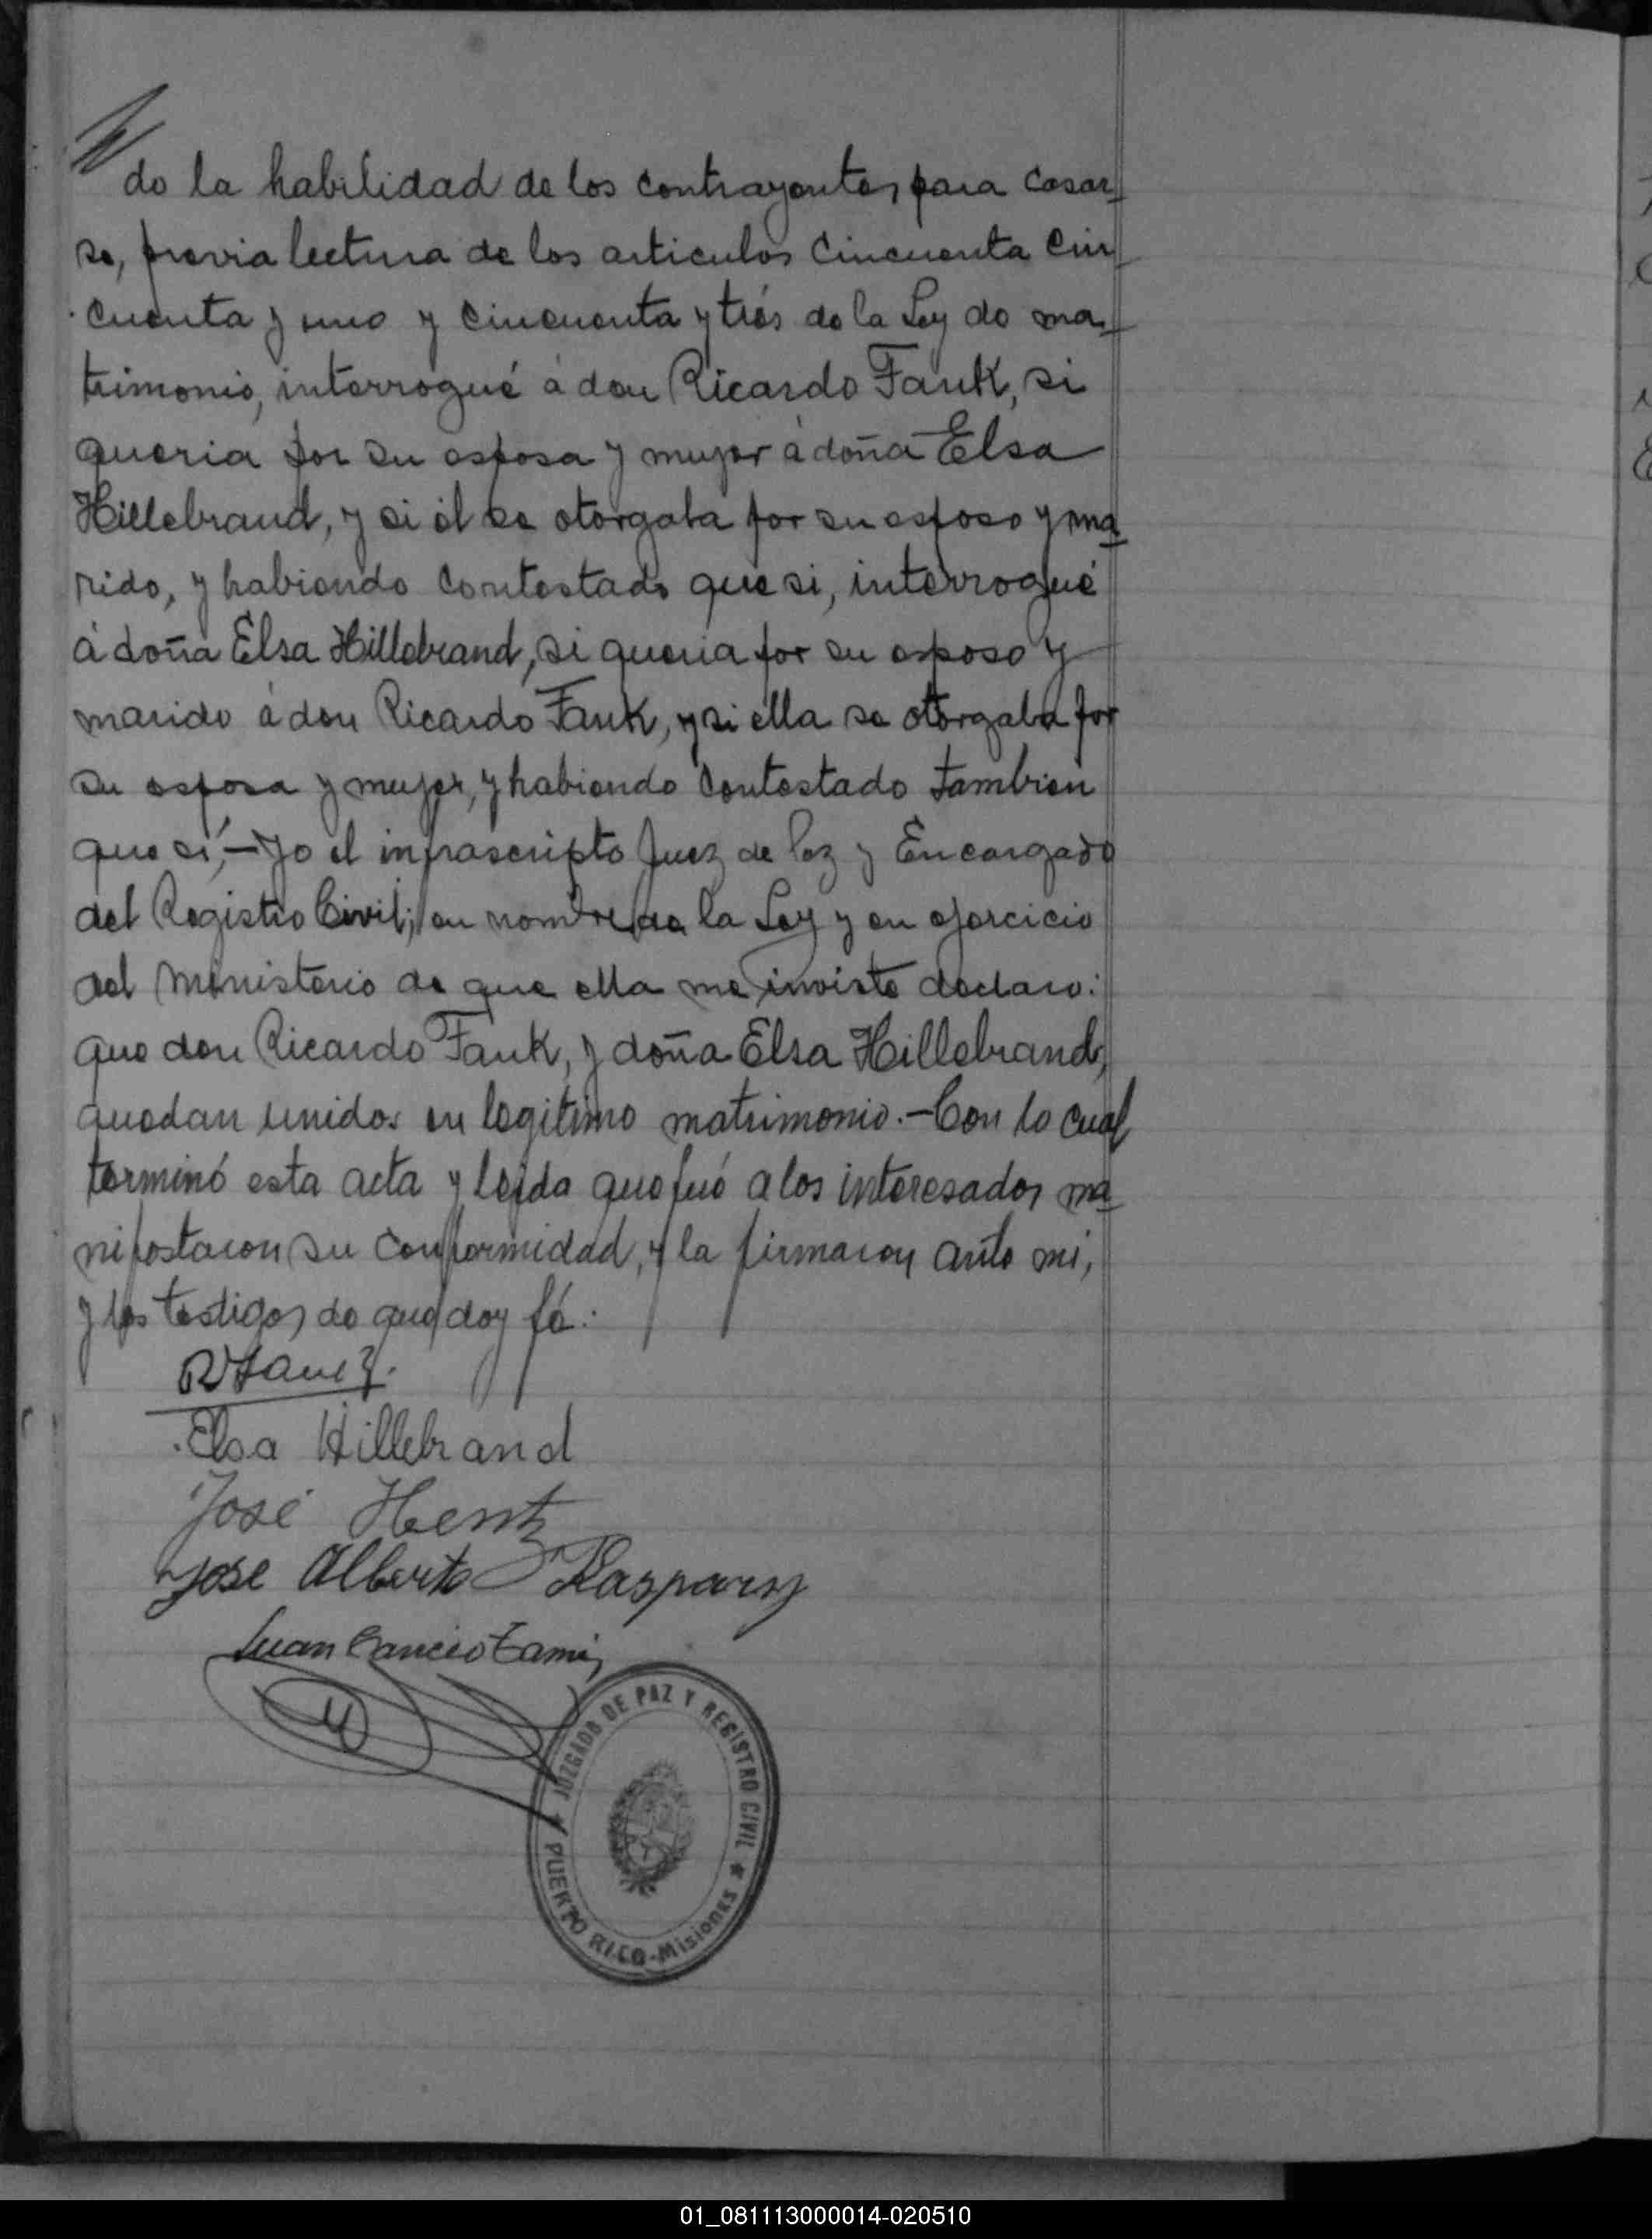 do la habilidad de los contrayentes para casar-
se, previa lectura de los articulos cincuenta cin-
cuenta y uno y cincuenta y trés de la Ley de ma-
trimonio, interrogué á don Ricardo Fank, si
queria por su esposa y mujer á doña Elsa
Hillebrand, y si él se otorgaba por su esposo y ma-
rido, y habiendo contestado que si, interrogué
á doña Elsa Hillebrand, si queria por su esposo y
marido á don Ricardo Fank, y si ella se otorgaba por
su esposa y mujer, y habiendo contestado tambien
que sí,- Yo el infrascripto Juez de Paz y Encargado
del Registro Civil; en nombre de la Ley y en ejercicio
del ministerio de que ella me inviste declaro:
que don Ricardo Fank, y doña Elsa Hillebrand,
quedan unidos en legitimo matrimonio.- Con lo cual
terminó esta acta y leida que fué a los interesados ma-
nifestaron su conformidad, y la firmaron ante mi,
y los testigos de que doy fé.
Elsa Hillebrand
José Hentz
Jose Alberto
Juan Cancio
JUZGADO DE PAZ Y REGISTRO CIVIL
PUERTO RICO-Misiones
01_081113000014-020510